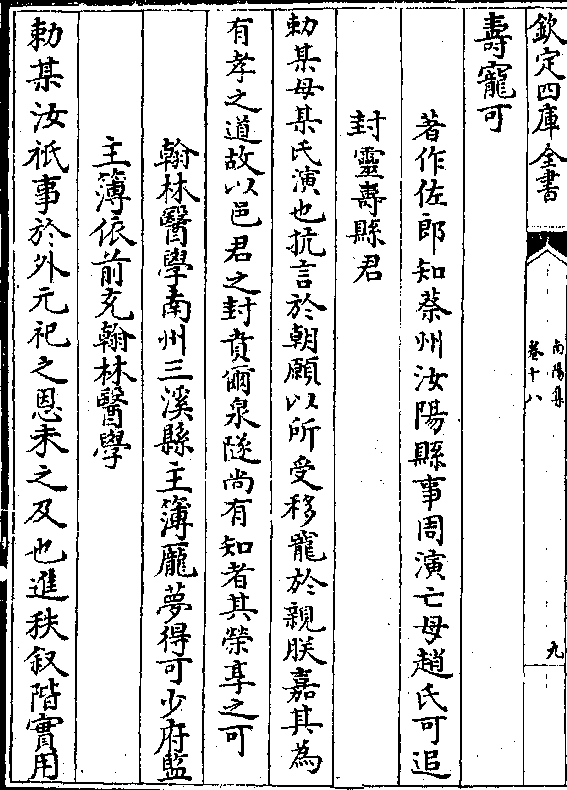 欽定四庫全書
南陽集
卷十八
九
壽寵可
著作佐郎知蔡州汝陽縣事周演亡母趙氏可追
封靈壽縣君
勅某母某氏演也抗言於朝願以所受移寵於親朕嘉其為
有孝之道故以邑君之封賁爾泉隧尚有知者其榮享之可
翰林醫學南州三溪縣主簿龐夢得可少府監
主簿依前充翰林醫學
勅某汝祇事於外元祀之恩未之及也進秩叙階實用